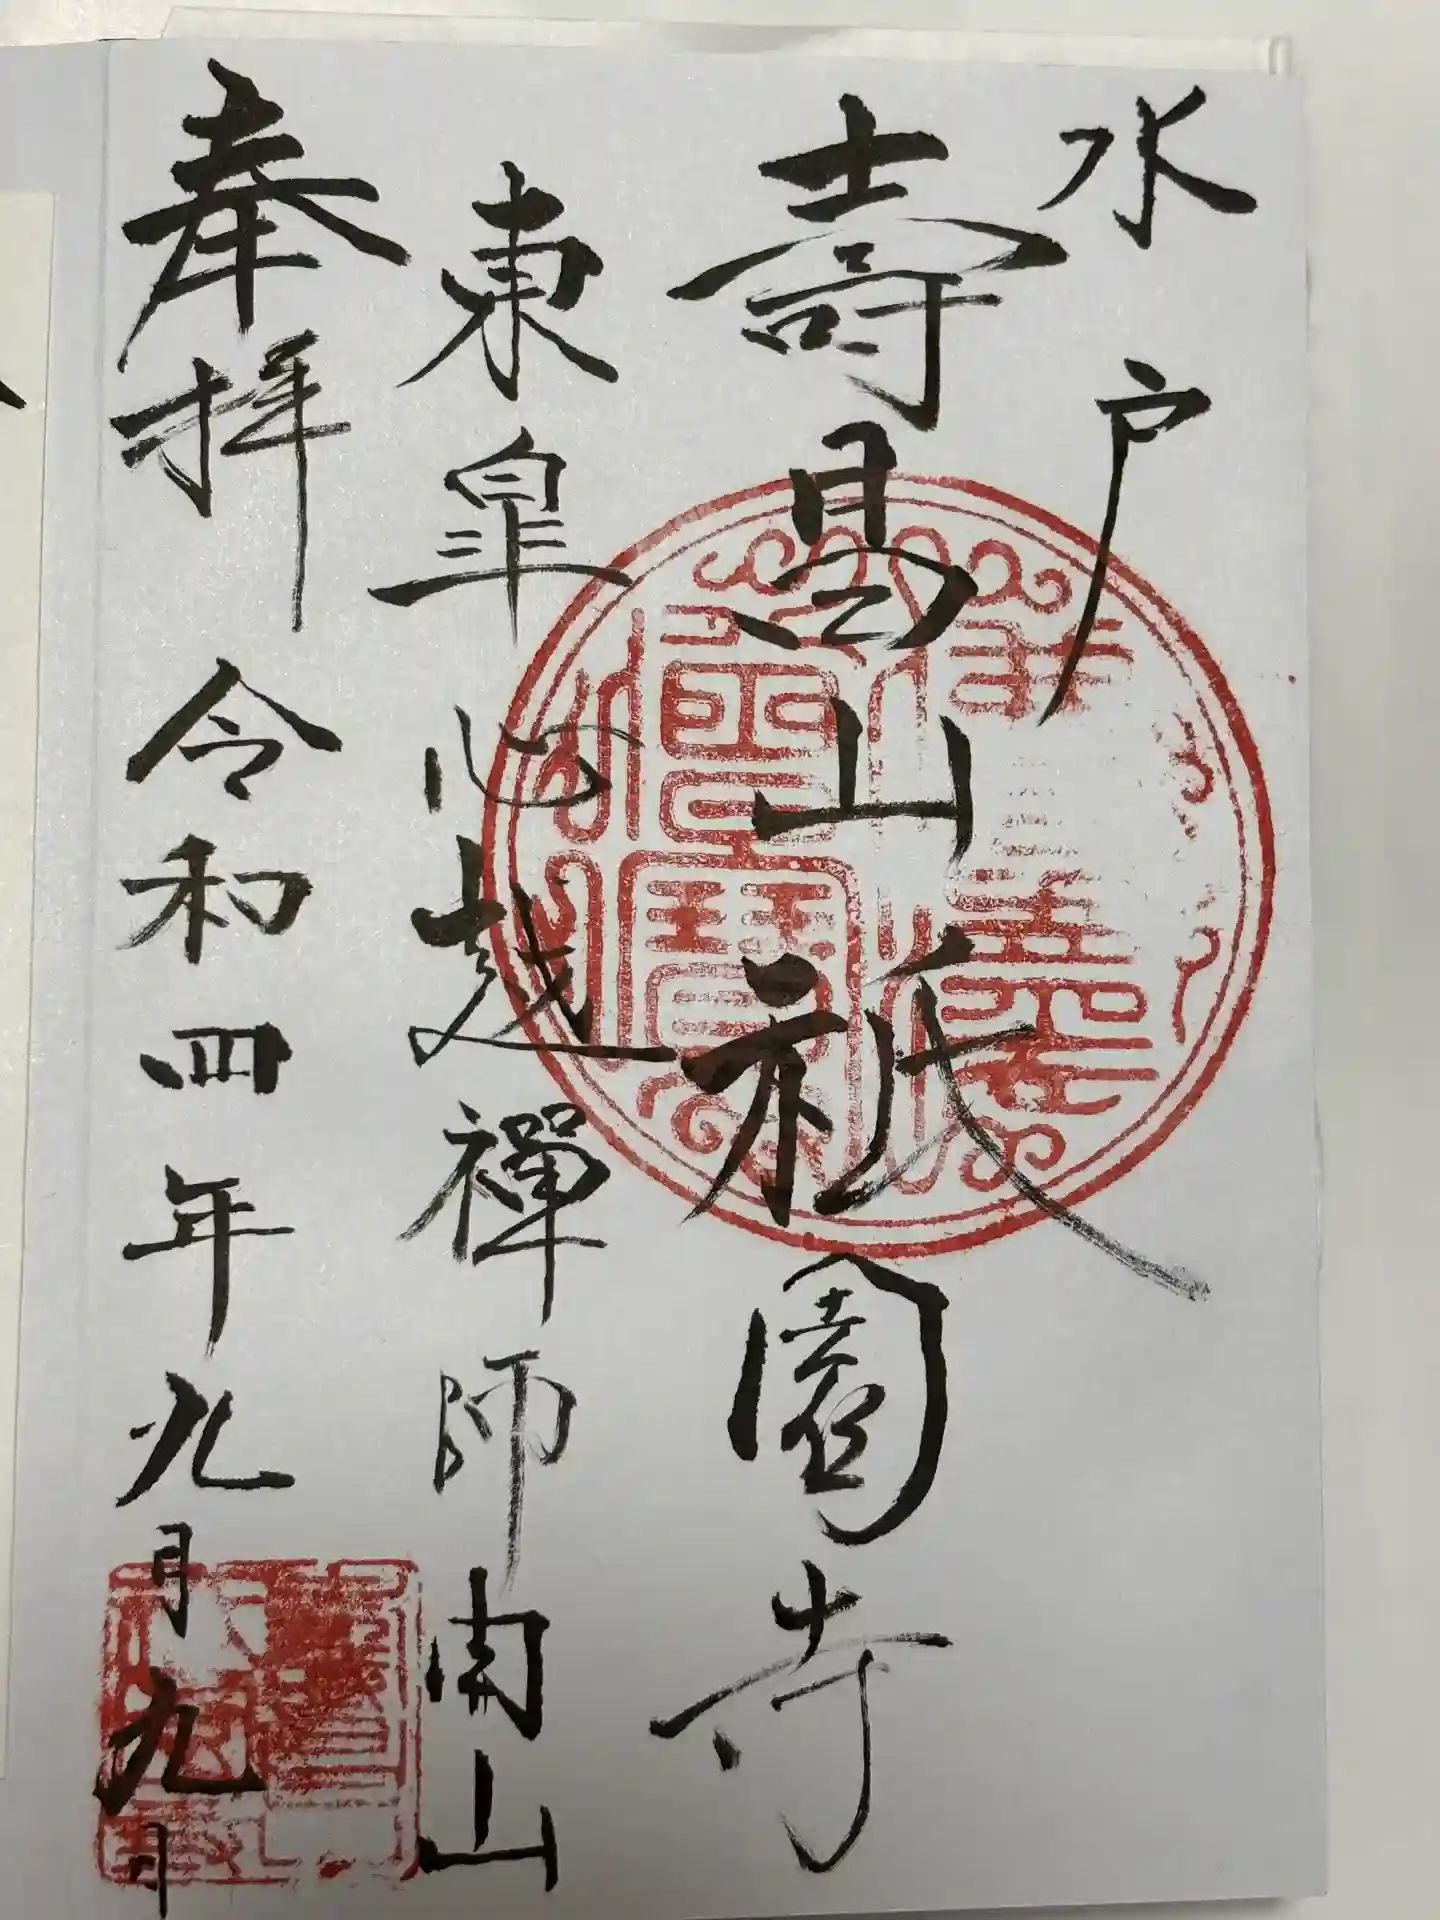 水戸
壽昌山祇園寺
東皐心越禪師開山
奉拝 令和四年九月九日